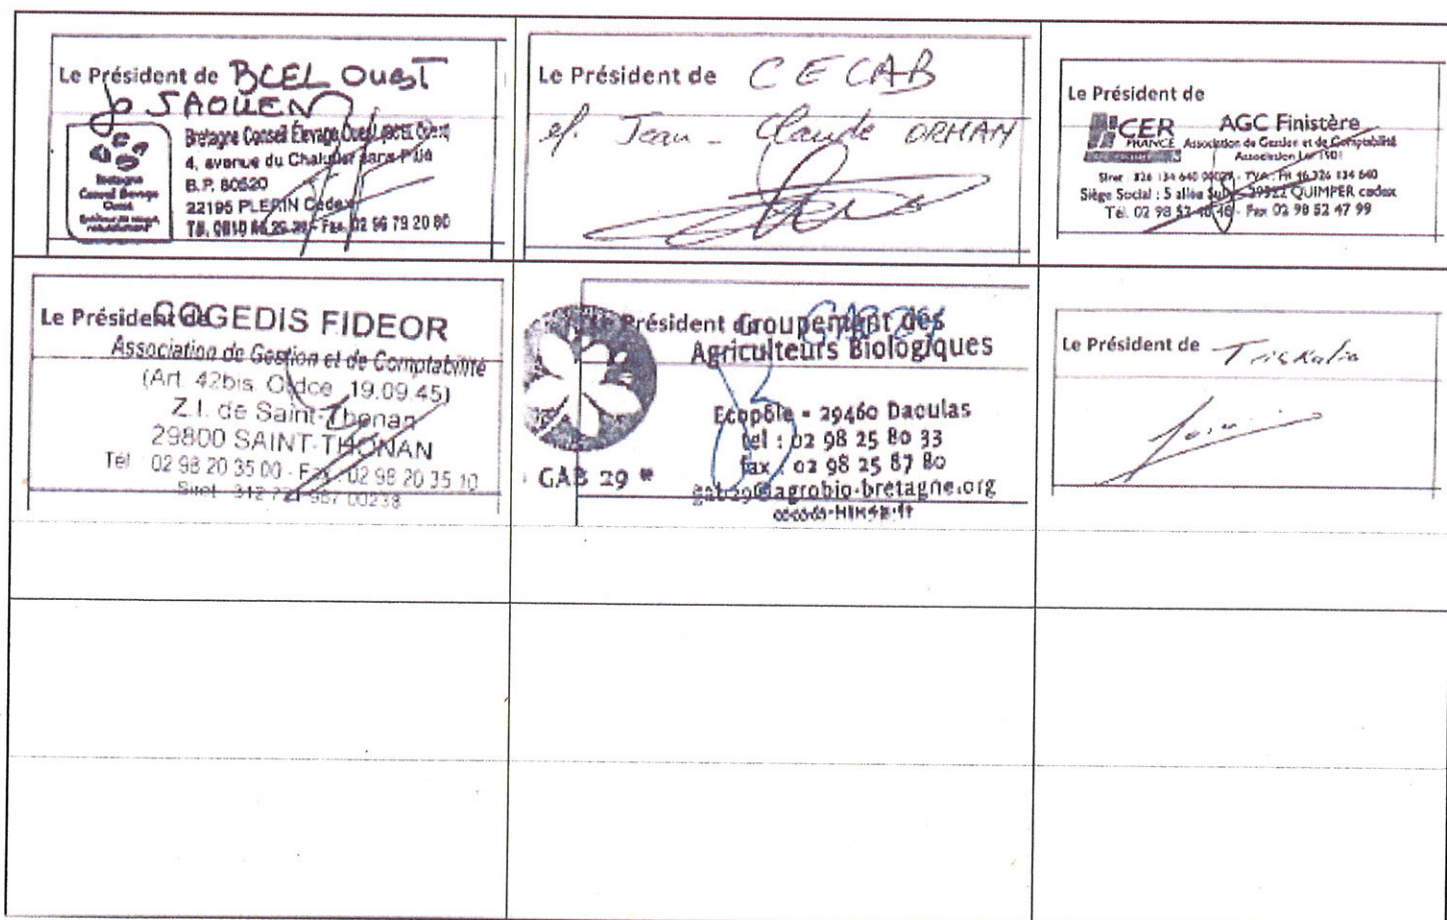 Le Président de BCEL OUEST
JAOUEN
Bretagne Conseil Élevage Ouest
4, avenue du Chalutier sans Pitié
B.P. 80520
22195 PLERIN Cedex
Fax. 02 96 79 20 80
Bretagne
Conseil Élevage
Ouest
Le Président de CECAB
Jean-Claude ORHAN
Le Président de
CER
FRANCE
AGC Finistère
Association de Gestion et de Comptabilité
Association Loi 1901
Siège Social : 5 allée 29322 QUIMPER cedex
Tél. 02 98 52 48 48 - Fax 02 98 52 47 99
Le Président de COGEDIS FIDEOR
Association de Gestion et de Comptabilité
(Art. 42bis Ordce 19.09.45)
Z.I. de Saint-Thonan
29800 SAINT-THONAN
Tél 02 98 20 35 00 - Fax : 02 98 20 35 10
Le Président du GAB 29
Groupement des
Agriculteurs Biologiques
Ecopôle - 29460 Daoulas
tel : 02 98 25 80 33
fax : 02 98 25 87 80
GAB 29
gab29@agrobio-bretagne.org
Le Président de Triskalia